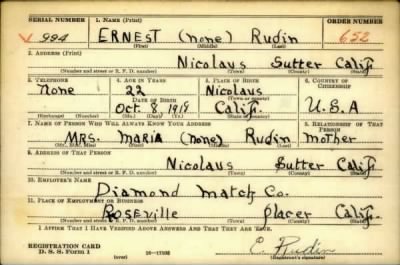 SERIAL NUMBER 1. NAME (Print) ORDER NUMBER
V 994 ERNEST (none) Rudin 652
(First) (Middle) (Last)
2. ADDRESS (Print)
Nicolaus Sutter Calif.
(Number and street or R. F. D. number) (Town) (County) (State)
3. TELEPHONE 4. AGE IN YEARS 5. PLACE OF BIRTH 6. COUNTRY OF CITIZENSHIP
None 22 Nicolaus
DATE OF BIRTH (Town or county)
Oct. 8 1918 Calif. U.S.A
(Exchange) (Number) (Mo.) (Day) (Yr.) (State or country)
7. NAME OF PERSON WHO WILL ALWAYS KNOW YOUR ADDRESS 8. RELATIONSHIP OF THAT PERSON
MRS. MARIA (none) Rudin Mother
(Mr., Mrs., Miss) (First) (Middle) (Last)
9. ADDRESS OF THAT PERSON
Nicolaus Sutter Calif.
(Number and street or R. F. D. number) (Town) (County) (State)
10. EMPLOYER'S NAME
Diamond Match Co.
11. PLACE OF EMPLOYMENT OR BUSINESS
Roseville Placer Calif.
(Number and street or R. F. D. number) (Town) (County) (State)
I AFFIRM THAT I HAVE VERIFIED ABOVE ANSWERS AND THAT THEY ARE TRUE.
REGISTRATION CARD
D. S. S. Form 1 16—17105 E. Rudin
(Registrant's signature)